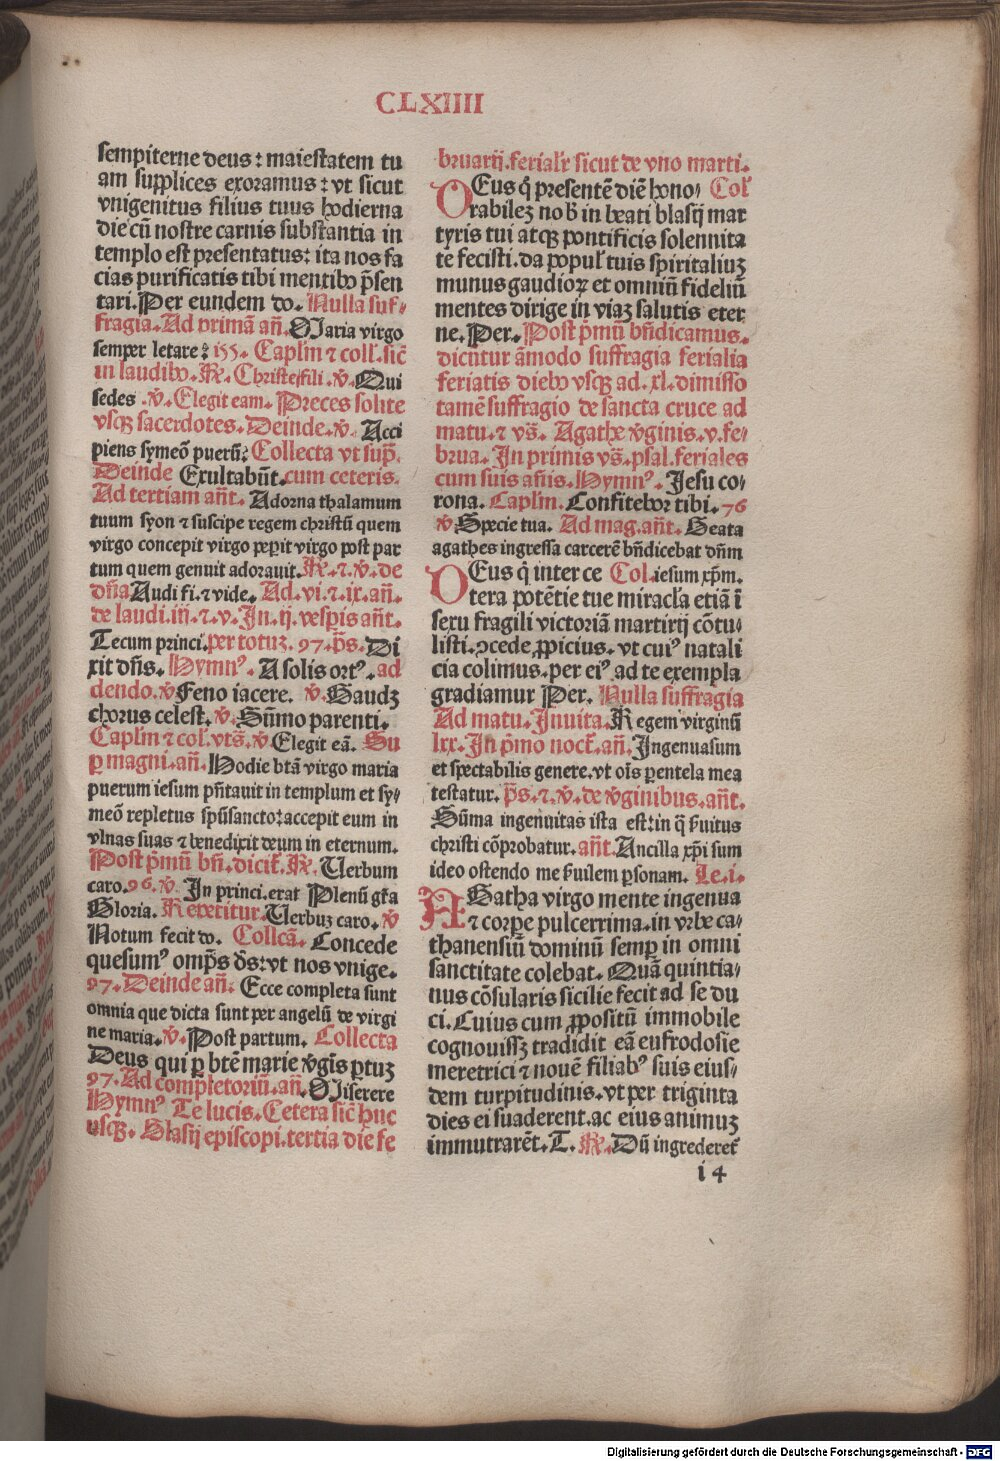 CLXIIII
sempiterne deus: maiestatem tu
am supplices exoramus: vt sicut
vnigenitus filius tuus hodierna
die cū nostre carnis substantia in
templo est presentatus: ita nos fa
cias purificatis tibi mentibꝰ p̄sen
tari. Per eundem do. Nulla suf⸗
fragia. Ad primā an̄. Maria virgo
semper letare: 155. Caplm̄ ⁊ coll'. sic̄
in laudibꝰ. ꝶ. Christe fili. ℣. Qui
sedes. ℣. Elegit eam. Preces solite
vsqꝫ sacerdotes. Deinde. ℣. Acci
piens symeō puerū: Collecta vt sup̄.
Deinde Exultabūt. cum ceteris.
Ad tertiam an̄t. Adorna thalamum
tuum syon ⁊ suscipe regem christū quem
virgo concepit virgo peperit virgo post par
tum quem genuit adorauit. ꝶ. ⁊. ℣. de
dn̄a Audi fi. ⁊ vide. Ad. vi. ⁊. ix. an̄.
de laudi. iij. ⁊. v. In. ij. vesp̄is an̄t.
Tecum princi. per totuꝫ. 97. p̄s. Di
xit dn̄s. Hymnꝰ. A solis ortꝰ. ad
dendo. ℣ Feno iacere. ℣. Gaudꝫ
chorus celest. ℣. Sūmo parenti.
Caplm̄ ⁊ col'. vts̄. ℣ Elegit eā. Su
ꝑ magni. an̄. Hodie btā virgo maria
puerum iesum pn̄tauit in templum et sy⸗
meō repletus spū sancto: accepit eum in
vlnas suas ⁊ benedixit deum in eternum.
Post p̄mū bn̄. dicit̄. ꝶ. Uerbum
caro. 96. ℣. In princi. erat Plenū gr̄a
Gloria. Repetitur. Uerbuꝫ caro. ℣
Notum fecit do. Collcā. Concede
quesumꝰ omp̄s ds̄: vt nos vnige.
97. Deinde an̄. Ecce completa sunt
omnia que dicta sunt per angelū de virgi
ne maria. ℣. Post partum. Collecta
Deus qui ꝑ btē marie ꝟgīs ꝑtuꝫ
97. Ad completoriū. an̄. Miserere
Hymnꝰ Te lucis. Cetera sic̄ huc
vsqꝫ. Blasij episcopi. tertia die fe
bruarij. ferial'r sicut de vno marti.
DEus q̄ presentē diē hono⸗ Col'
rabileꝫ nob̄ in beati blasij mar
tyris tui atqꝫ pontificis solennita
te fecisti. da popul' tuis spiritaliuꝫ
munus gaudioꝝ et omniū fideliū
mentes dirige in viaꝫ salutis eter
ne. Per. Post p̄mū bn̄dicamus.
dicūtur āmodo suffragia ferialia
feriatis diebꝰ vsqꝫ ad. xl. dimisso
tamē suffragio de sancta cruce ad
matu. ⁊ vs̄. Agathe ꝟginis. v. fe⸗
brua. In primis vs̄. psal. feriales
cum suis an̄is. Hymnꝰ. Jesu co⸗
rona. Caplm̄. Confitebor tibi. 76
℣. Specie tua. Ad mag. an̄t. Beata
agathes ingressa carcerē bn̄dicebat dn̄m
DEus q̄ inter ce Col. iesum xp̄m.
tera potētie tue miracl'a etiā ī
sexu fragili victoriā martirij cōtu⸗
listi. ꝯcede ꝓpicius. vt cuiꝰ natali
cia colimus. per eiꝰ ad te exempla
gradiamur Per. Nulla suffragia
Ad matu. Inuita. Regem virginū
lxx. In p̄mo noct. an̄. Ingenua sum
et spectabilis genere. vt oīs parentela mea
testatur. p̄s. ⁊. ℣. de ꝟginibus. an̄t.
Sūma ingenuitas ista est: in q̄ ẜuitus
christi cōprobatur. an̄t. Ancilla xp̄i sum
ideo ostendo me ẜuilem ꝑsonam. Le. i.
AGatha virgo mente ingenua
⁊ corpe pulcerrima. in vrbe ca⸗
thanensiū dominū semp in omni
sanctitate colebat. Quā quintia⸗
nus cōsularis sicilie fecit ad se du
ci. Cuius cum ꝓpositū immobile
cognouissꝫ tradidit eā eufrodosie
meretrici ⁊ nouē filiabꝰ suis eius⸗
dem turpitudinis. vt per triginta
dies ei suaderent. ac eius animuꝫ
immutarēt. T. ꝶ. Dū ingrederet̄
i 4
Digitalisierung gefördert durch die Deutsche Forschungsgemeinschaft - DFG